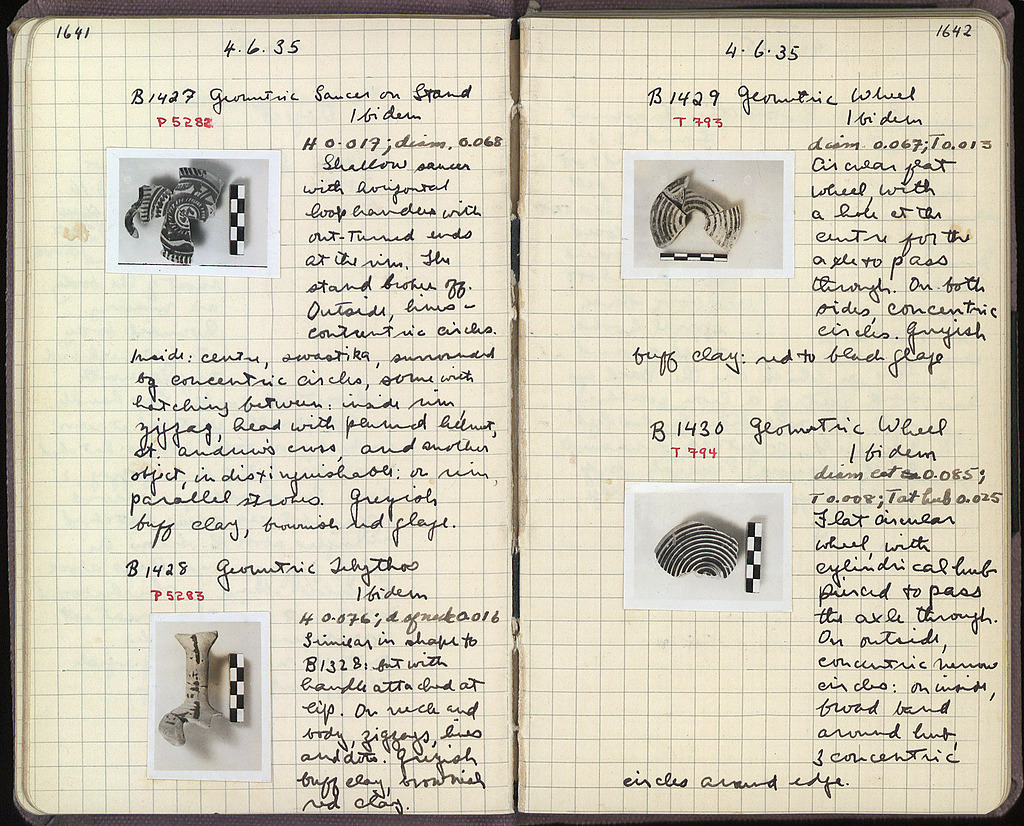 1641
4.6.35
B 1427 Geometric Saucer on Stand
P 5282
Ibidem
H 0.017; diam. 0.068
Shallow saucer
with horizontal
loop handles with
out-turned ends
at the rim. The
stand broken off.
Outside, lines -
concentric circles.
Inside: centre, swastika, surrounded
by concentric circles, some with
hatching between: inside rim,
zigzag, head with plumed helmet,
St. andrew's cross, and another
object, indistinguishable: on rim,
parallel strokes. Greyish
buff clay, brownish red glaze.
B 1428 Geometric Lekythos
P 5283
Ibidem
H 0.076; d of neck 0.016
Similar in shape to
B1328: but with
handle attached at
lip. On neck and
body, zigzags, lines
and dots. Greyish
buff clay, brownish
red clay.
1642
4.6.35
B 1429 Geometric Wheel
T 793
Ibidem
diam 0.067; T 0.013
Circular flat
wheel, with
a hole at the
centre for the
axle to pass
through. On both
sides, concentric
circles. Greyish
buff clay: red to black glaze
B 1430 Geometric Wheel
T 794
Ibidem
diam est 0.085;
T 0.008; T at hub 0.025
Flat circular
wheel, with
cylindrical hub
pierced to pass
the axle through.
On outside,
concentric narrow
circles: on inside,
broad band
around hub,
3 concentric
circles around edge.